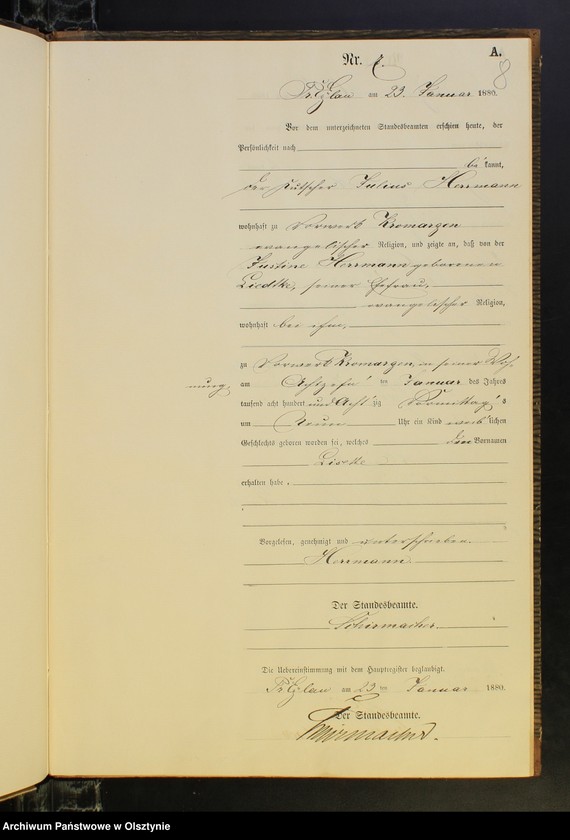 A.
Nr. 7.
8
am 23. Januar 1880.
Vor dem unterzeichneten Standesbeamten erschien heute, der
Persönlichkeit nach
be kannt,
der Kutscher Julius Herrmann
wohnhaft zu Vorwerk Kromargen
evangelischer Religion, und zeigte an, daß von der
Justine Herrmann geborenen
Liedtke, seiner Ehefrau,
evangelischer Religion,
wohnhaft bei ihm,
zu Vorwerk Kromargen, in seiner Woh-
nung,
am Achtzehn ten Januar des Jahres
tausend acht hundert und Acht zig Vormittag s
um Neun Uhr ein Kind weib lichen
Geschlechts geboren worden sei, welches den Vornamen
Lisette
erhalten habe.
Vorgelesen, genehmigt und unterschrieben.
Herrmann
Der Standesbeamte.
Schirmacher
Die Uebereinstimmung mit dem Hauptregister beglaubigt.
am 23 ten Januar 1880.
Der Standesbeamte.
Schirmacher.
Archiwum Państwowe w Olsztynie